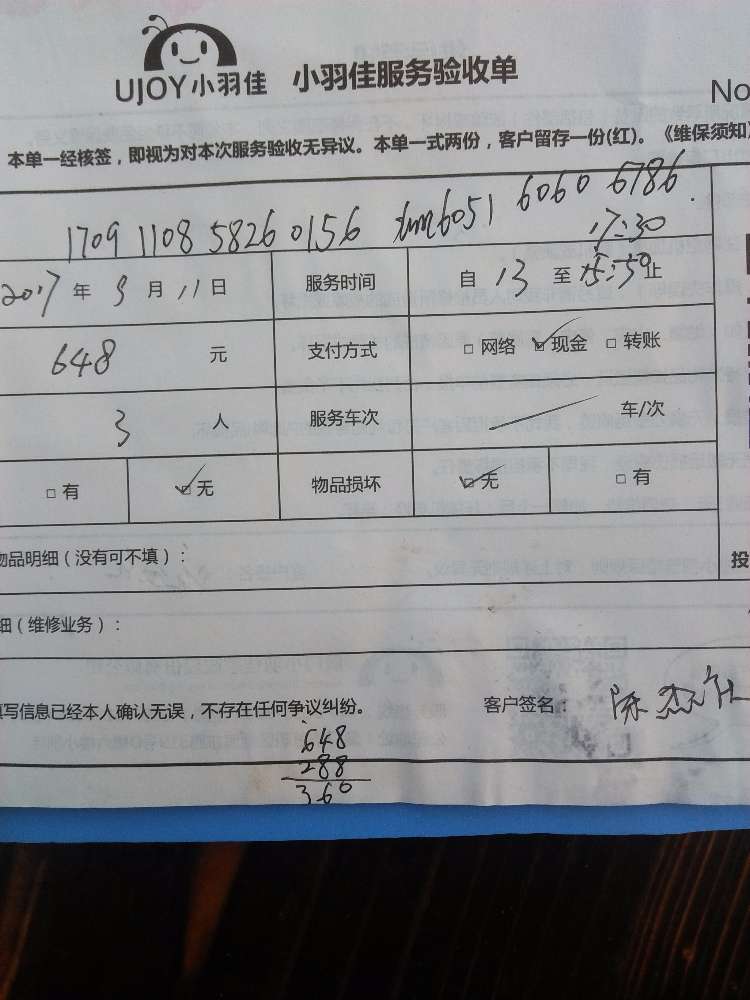 UJOY小羽佳 小羽佳服务验收单
No
本单一经核签，即视为对本次服务验收无异议。本单一式两份，客户留存一份(红)。《维保须知》
1709 1108 5826 0156 6051 6060 6786
17:30
2017 年 9 月 11 日 服务时间 自 13 至 止
648 元 支付方式 □ 网络 ☑ 现金 □ 转账
3 人 服务车次 车/次
□ 有 ☑ 无 物品损坏 ☑ 无 □ 有
物品明细（没有可不填）：
投
细（维修业务）：
填写信息已经本人确认无误，不存在任何争议纠纷。 客户签名： 陈杰
648
288
360